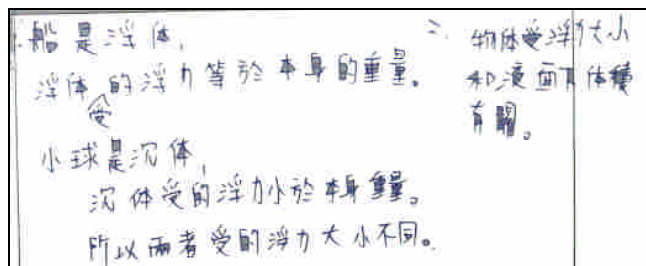 船是浮体,
浮体受的浮力等於本身的重量。
小球是沉体,
沉体受的浮力小於本身重量。
所以兩者受的浮力大小不同。
二、物体受浮力大小
和液面下体積
有關。